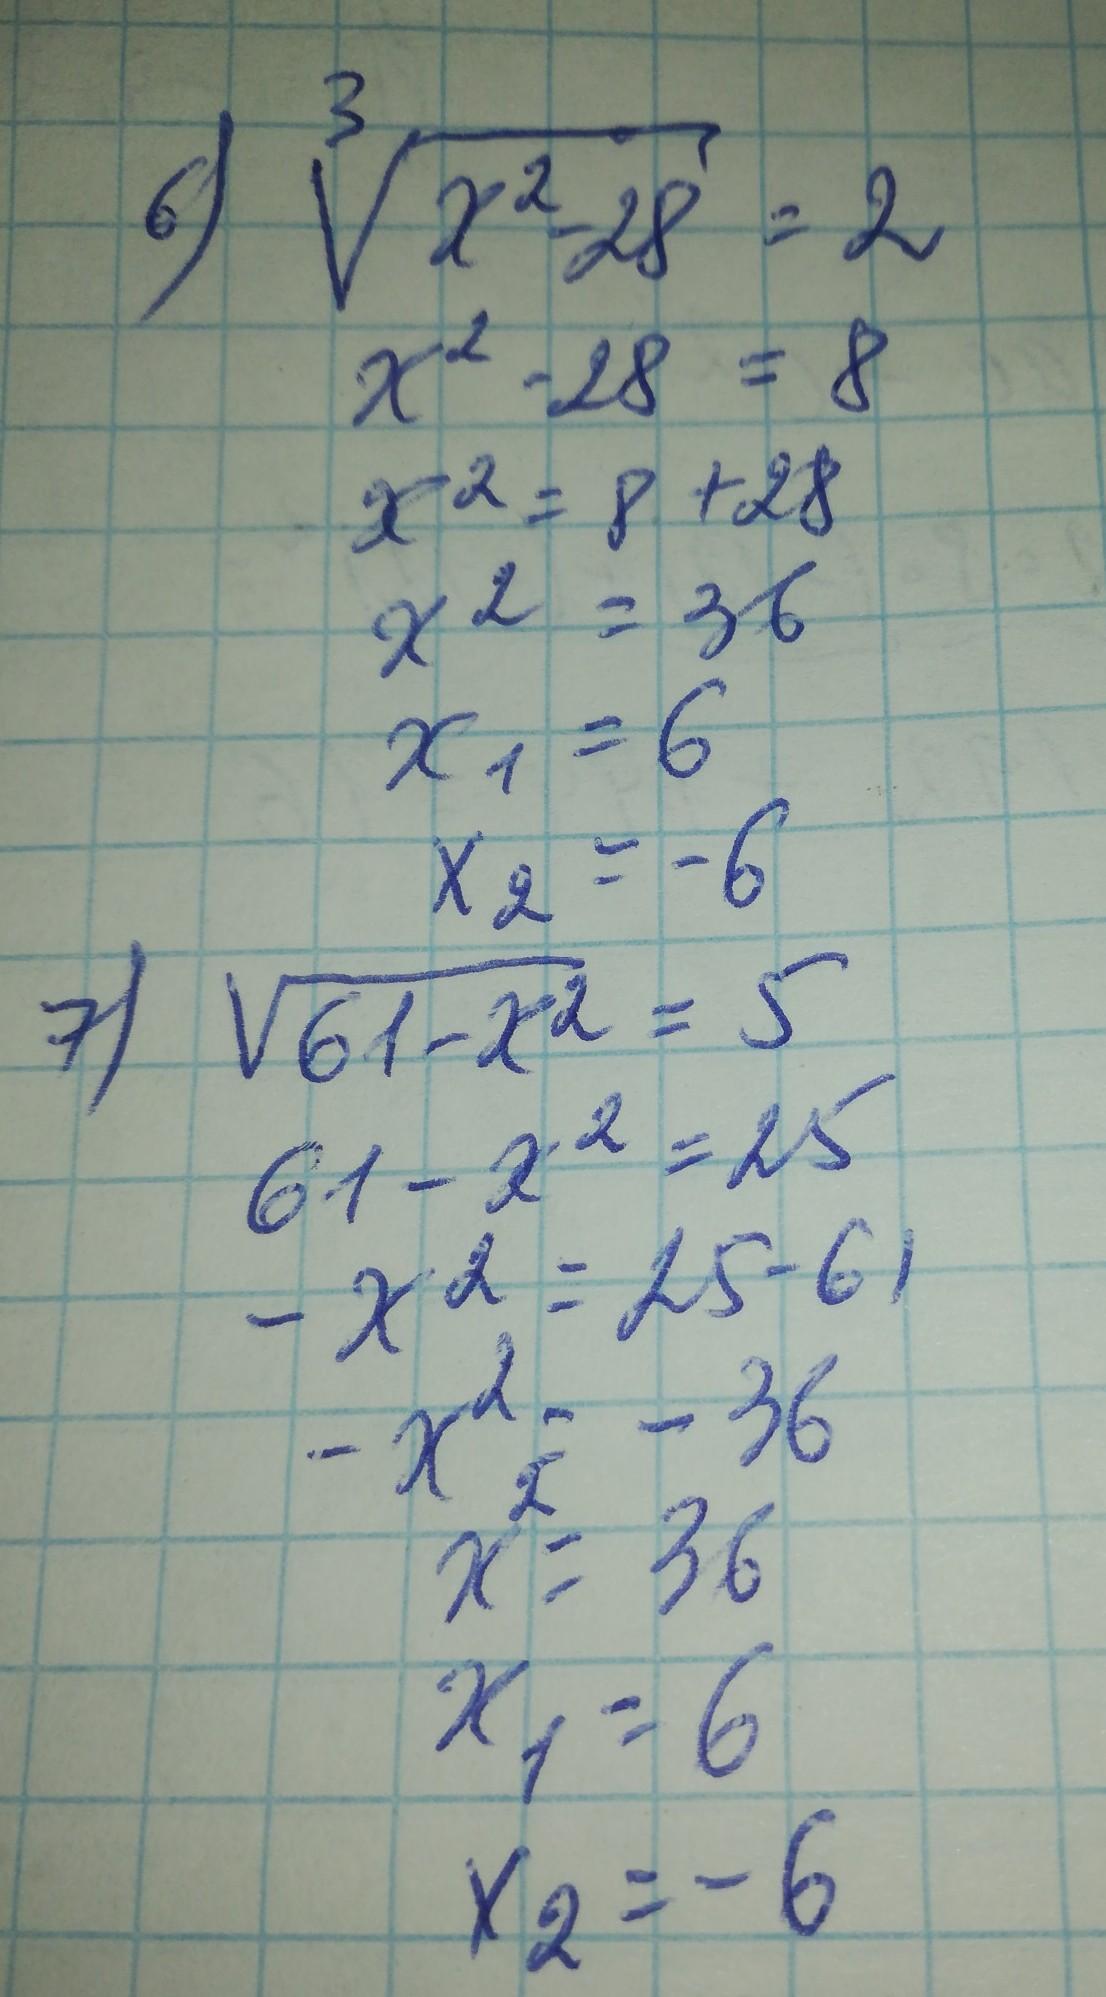 6) ∛(x² - 28) = 2
x² - 28 = 8
x² = 8 + 28
x² = 36
x₁ = 6
x₂ = -6
7) √(61 - x²) = 5
61 - x² = 25
- x² = 25 - 61
- x² = - 36
x² = 36
x₁ = 6
x₂ = - 6